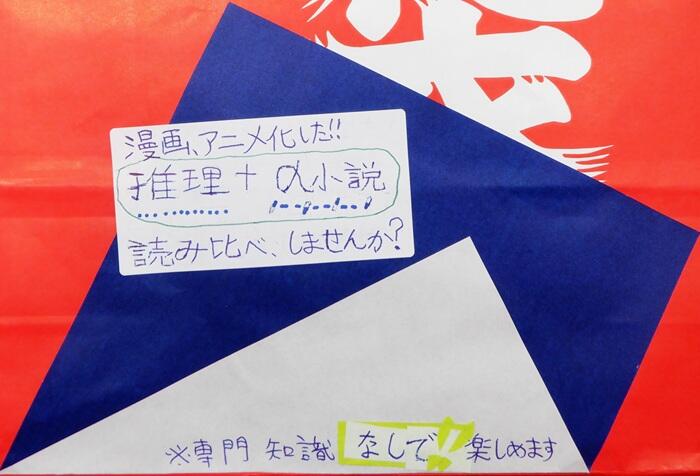 漫画、アニメ化した!!
推理+α小説
読み比べ、しませんか?
※専門 知識 なしで!! 楽しめます